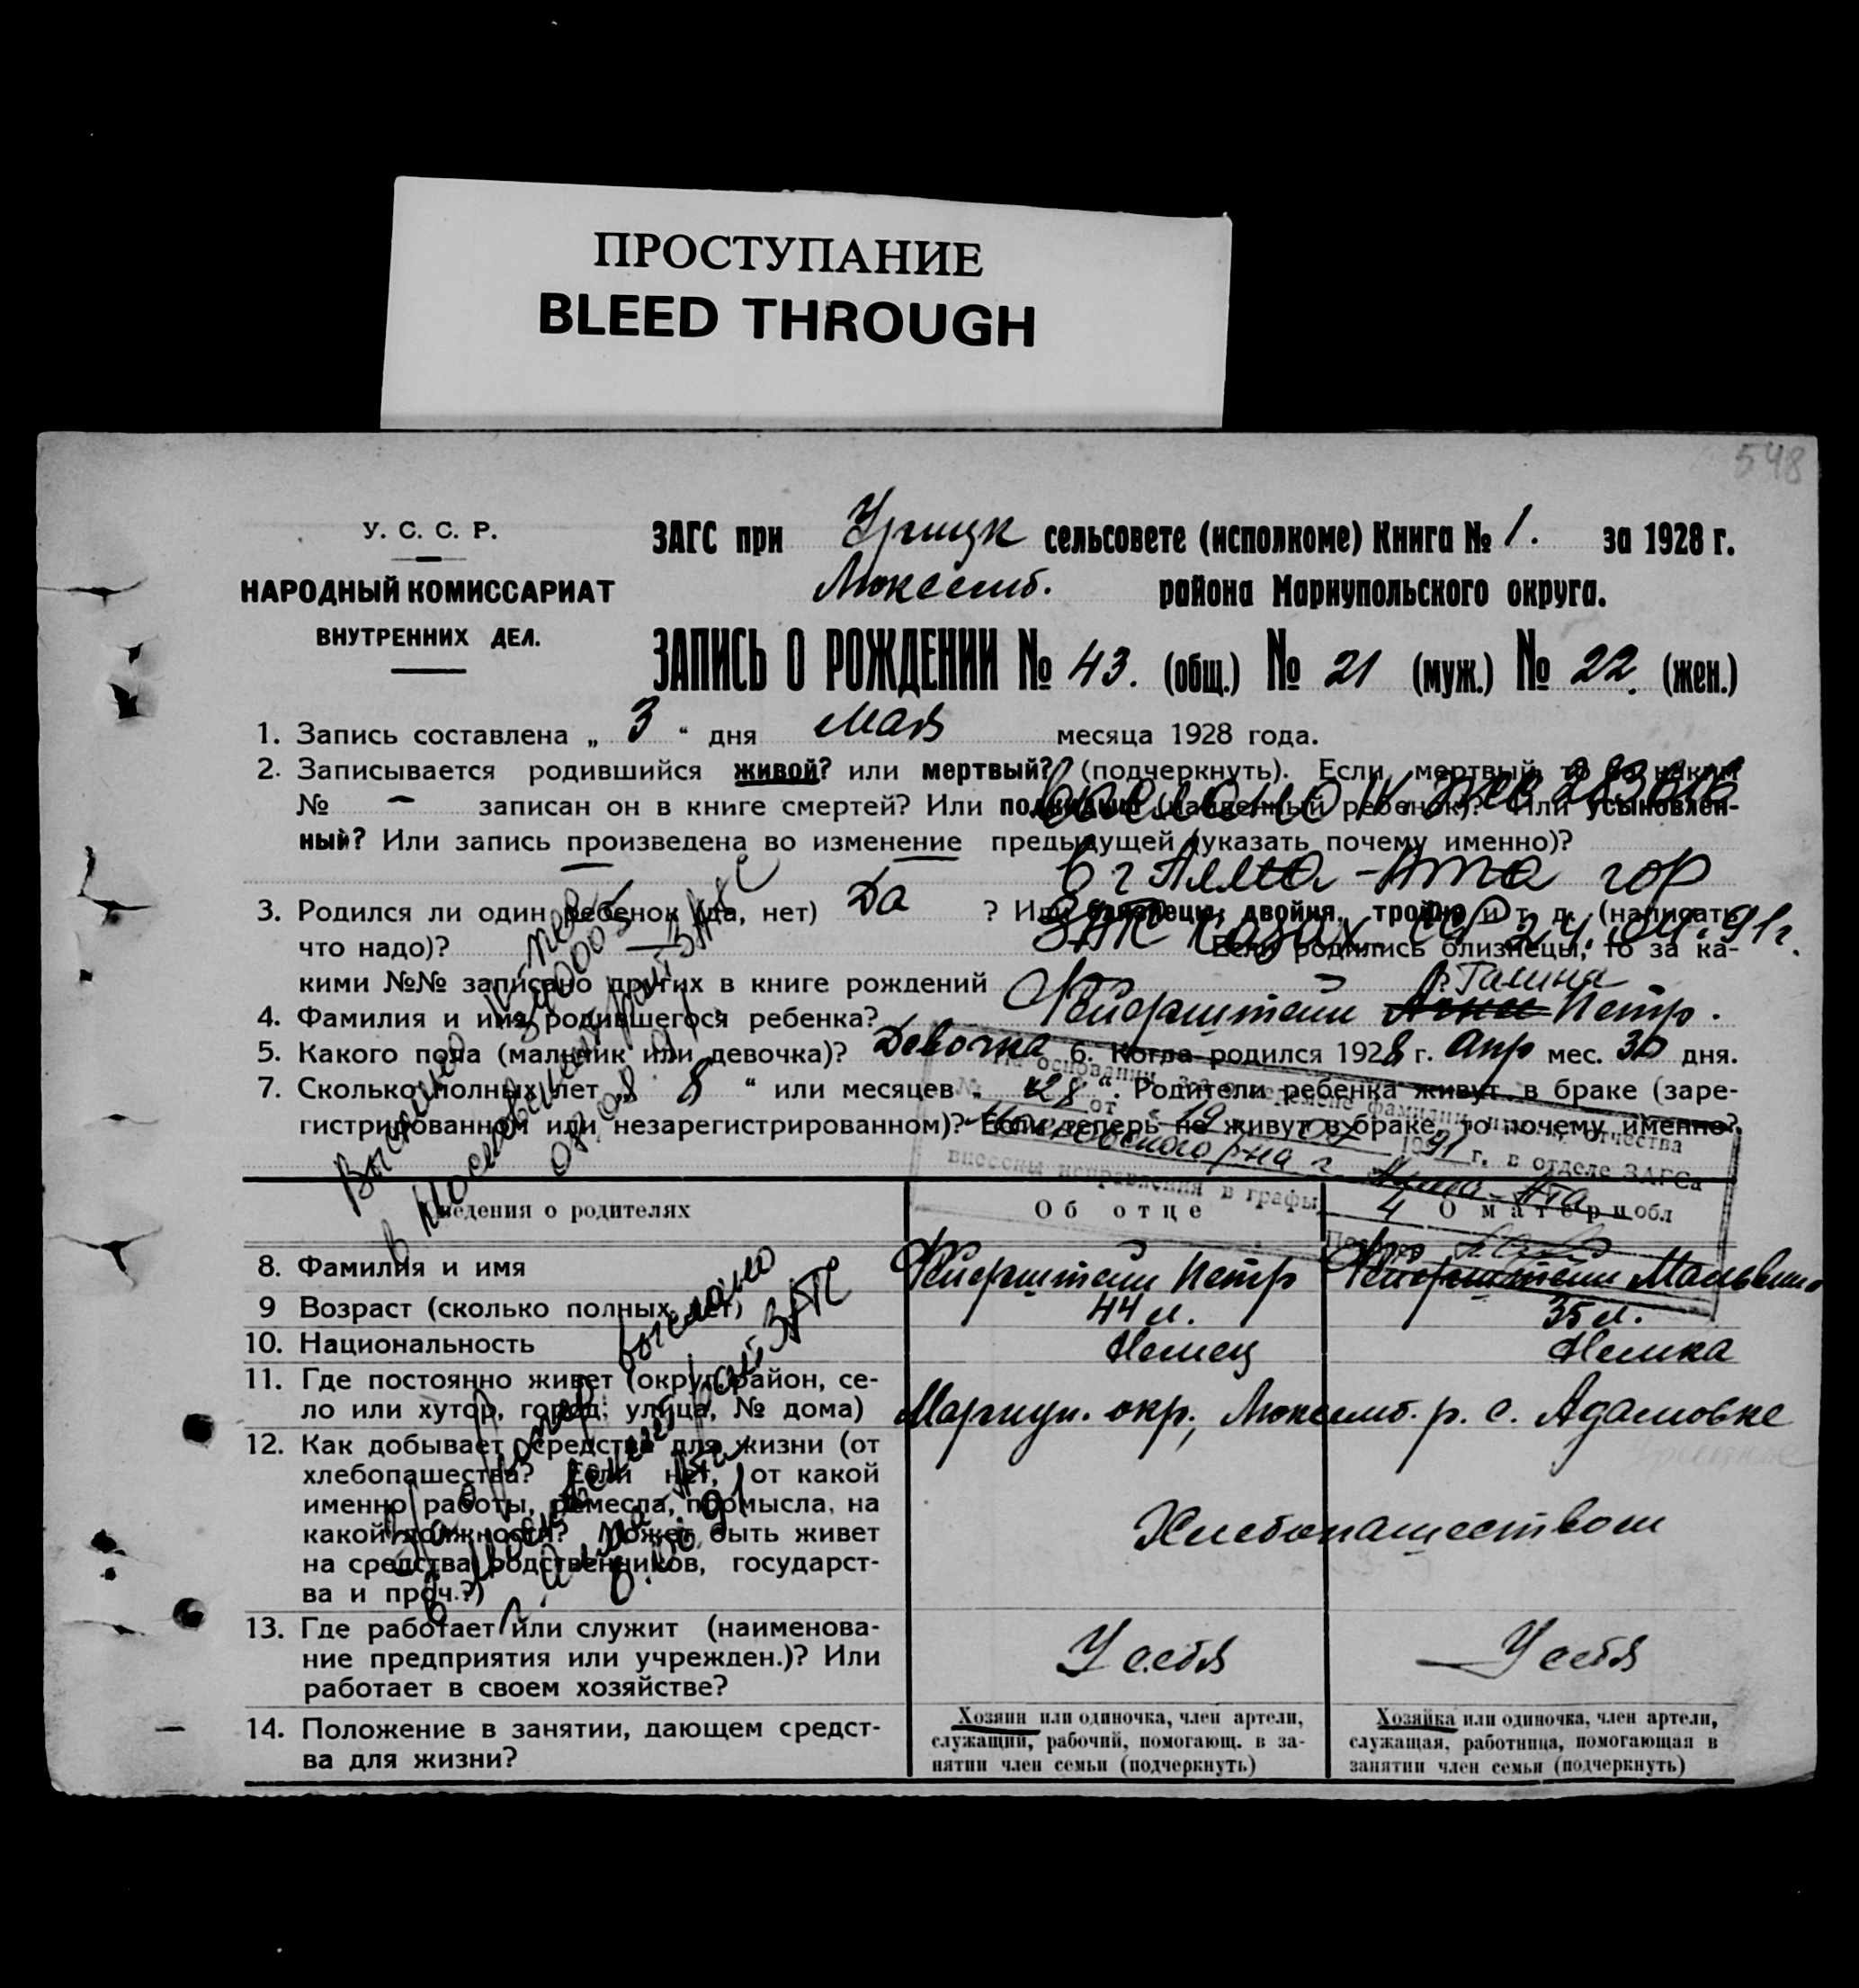 ПРОСТУПАНИЕ
BLEED THROUGH
548
У. С. С. Р.
НАРОДНЫЙ КОМИССАРИАТ
ВНУТРЕННИХ ДЕЛ.
ЗАГС при Урицк сельсовете (исполкоме) Книга № 1. за 1928 г.
Люксемб. района Мариупольского округа.
ЗАПИСЬ О РОЖДЕНИИ № 43. (общ.) № 21 (муж.) № 22. (жен.)
1. Запись составлена „ 3 “ дня мая месяца 1928 года.
2. Записывается родившийся живой? или мертвый? (подчеркнуть). Если мертвый, то
№ – записан он в книге смертей? Или подкидыш (найденный ребенок)? Или усыновлен-
ный? Или запись произведена во изменение предыдущей (указать почему именно)?
в г Алма-Ата гор
3. Родился ли один ребенок (да, нет) Да ? Или близнецы, двойня, тройня и т. д. (написать
что надо)? Если родились близнецы, то за ка-
ЗАГС Казах ССР 24.04.91г.
кими №№ записано других в книге рождений
Галина
4. Фамилия и имя родившегося ребенка? Петр.
5. Какого пола (мальчик или девочка)? Девочка 6. Когда родился 1928 г. Апр мес. 30 дня.
7. Сколько полных лет „ 8 “ или месяцев „ “. Родители ребенка живут в браке (заре-
гистрированном или незарегистрированном)? Если теперь не живут в браке, то почему именно?
На основании о перемене фамилии, имени, отчества
№ 28 от „19 1991 г. в отделе ЗАГСа
Московского р-на г Алма-Ата обл
внесены исправления в графы 4
Выслано
в Московский рай ЗАГС
выслано
в Московский рай ЗАГС
г. Алма-Ата
Сведения о родителях
Об отце
О матери
8. Фамилия и имя Петр
9 Возраст (сколько полных лет) 44 л. 35 л.
10. Национальность Немец Немка
11. Где постоянно живет (округ, район, се-
ло или хутор, город, улица, № дома) Мариуп. окр., Люксемб. р. с. Адамовке
12. Как добывает средства для жизни (от
хлебопашества? Если нет, от какой
именно работы, ремесла, промысла, на
какой должности? Может быть живет
на средства родственников, государст-
ва и проч.?)
Хлебопашеством
13. Где работает или служит (наименова-
ние предприятия или учрежден.)? Или
работает в своем хозяйстве?
У себя
У себя
14. Положение в занятии, дающем средст-
ва для жизни?
Хозяин или одиночка, член артели,
служащий, рабочий, помогающ. в за-
нятии член семьи (подчеркнуть)
Хозяйка или одиночка, член артели,
служащая, работница, помогающая в
занятии член семьи (подчеркнуть)